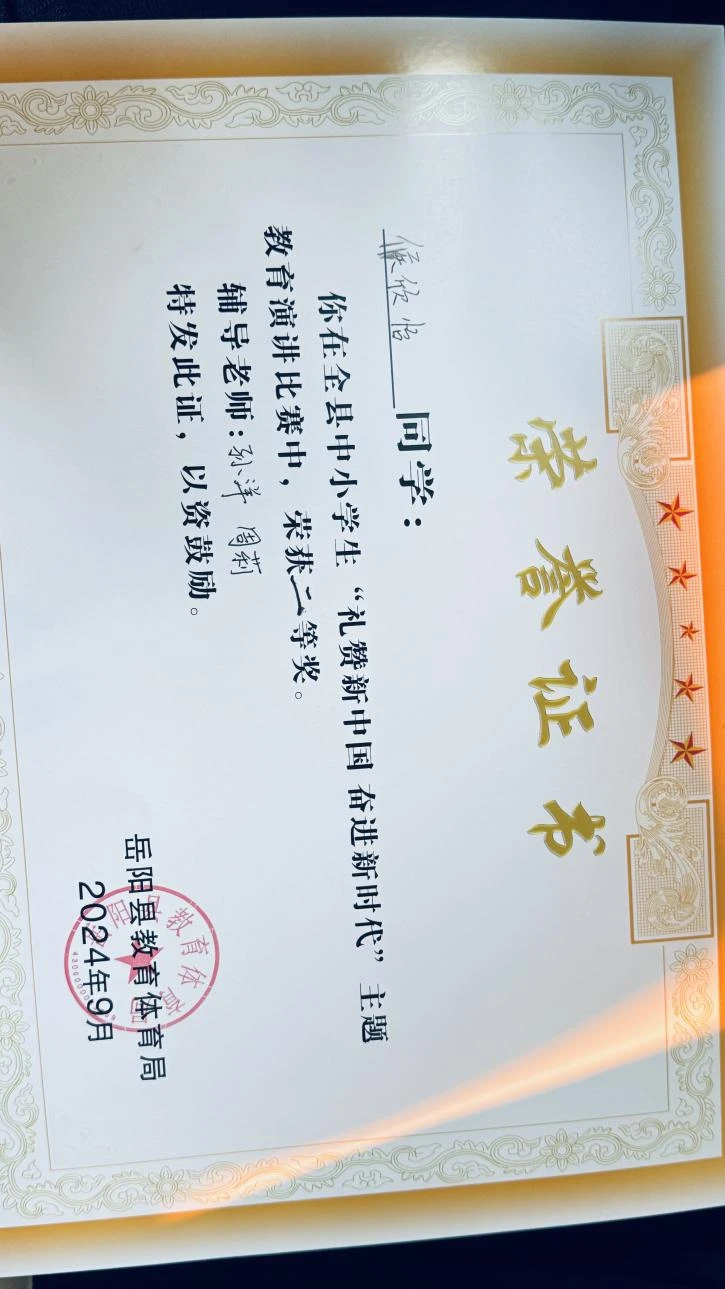 荣誉证书
侯欣怡同学：
你在全县中小学生“礼赞新中国 奋进新时代”主题
教育演讲比赛中，荣获二等奖。
辅导老师：孙洋 周莉
特发此证，以资鼓励。
岳阳县教育体育局
2024年9月